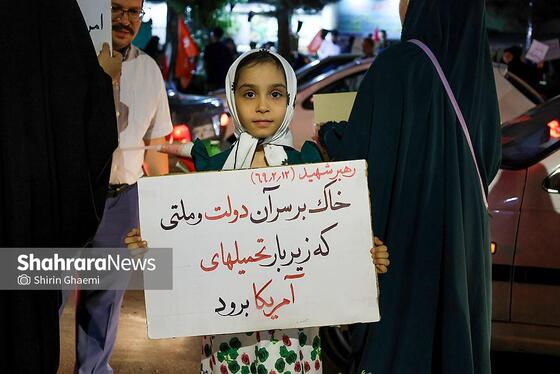 رهبر شهید (۶۹٫۲٫۱۲)
خاک بر سر آن دولت و ملتی
که زیر بار تحمیلهای
آمریکا برود
ShahraraNews
Shirin Ghaemi